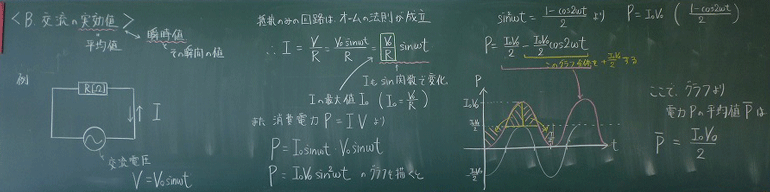 <B. 交流の実効値>
瞬時値
平均値
その瞬間の値
例
R[Ω]
I
交流電圧
V=V₀sinωt
抵抗のみの回路は、オームの法則が成立
∴ I = V/R = V₀sinωt/R = V₀/R sinωt
Iもsin関数で変化
Iの最大値 I₀ (I₀ = V₀/R)
また 消費電力 P = IV より
P = I₀sinωt・V₀sinωt
P = I₀V₀ sin²ωt のグラフを描くと
sin²ωt = 1-cos2ωt/2 より P = I₀V₀ (1-cos2ωt/2)
P = I₀V₀/2 - I₀V₀/2 cos2ωt
P
I₀V₀
I₀V₀/2
t
-I₀V₀/2
ここで、グラフより
電力Pの平均値P̄は
P̄ = I₀V₀/2